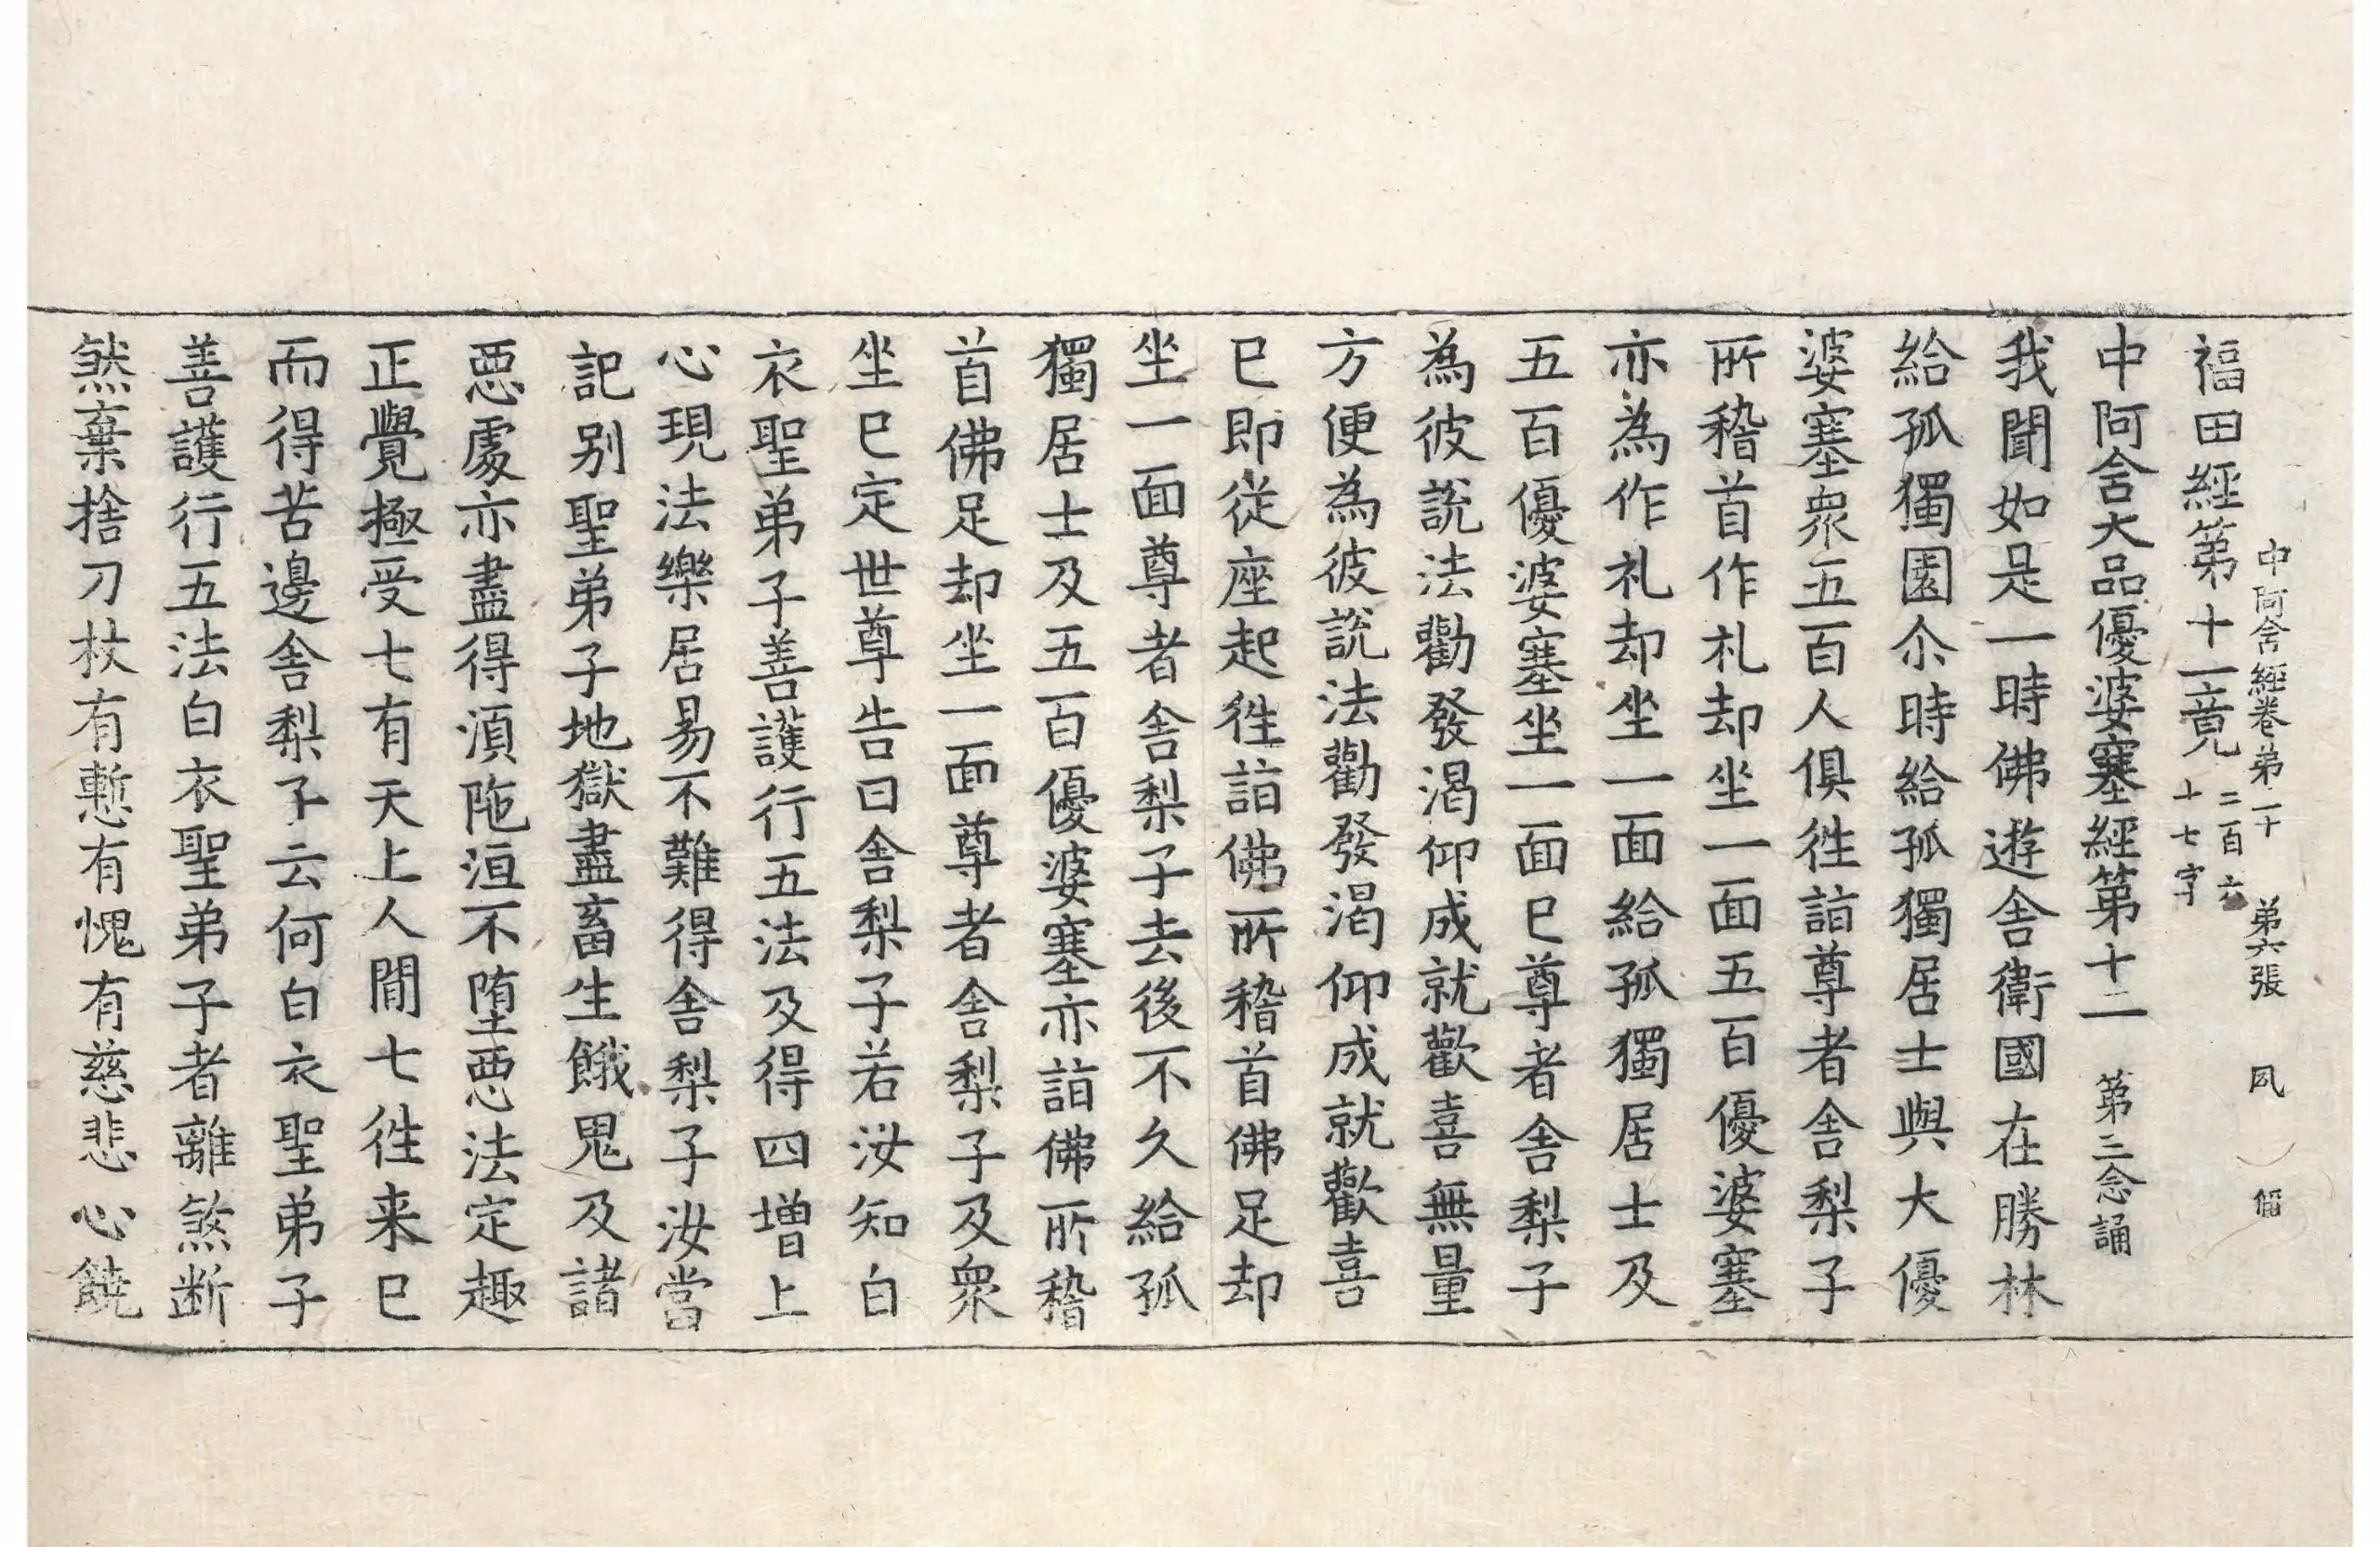 中阿含經卷第三十　第六張　夙
福田經第十一竟　二百六
十七字
中阿含大品優婆塞經第十二　第三念誦
我聞如是一時佛遊舍衛國在勝林
給孤獨園尒時給孤獨居士與大優
婆塞衆五百人俱徃詣尊者舍梨子
所稽首作礼却坐一面五百優婆塞
亦為作礼却坐一面給孤獨居士及
五百優婆塞坐一面已尊者舍梨子
為彼說法勸發渴仰成就歡喜無量
方便為彼說法勸發渴仰成就歡喜
已即從座起徃詣佛所稽首佛足却
坐一面尊者舍梨子去後不久給孤
獨居士及五百優婆塞亦詣佛所稽
首佛足却坐一面尊者舍梨子及衆
坐已定世尊告曰舍梨子若汝知白
衣聖弟子善護行五法及得四增上
心現法樂居易不難得舍梨子汝當
記別聖弟子地獄盡畜生餓鬼及諸
惡處亦盡得湏陁洹不墮惡法定趣
正覺極受七有天上人間七徃来已
而得苦邊舍梨子云何白衣聖弟子
善護行五法白衣聖弟子者離煞断
煞棄捨刀杖有慙有愧有慈悲心饒